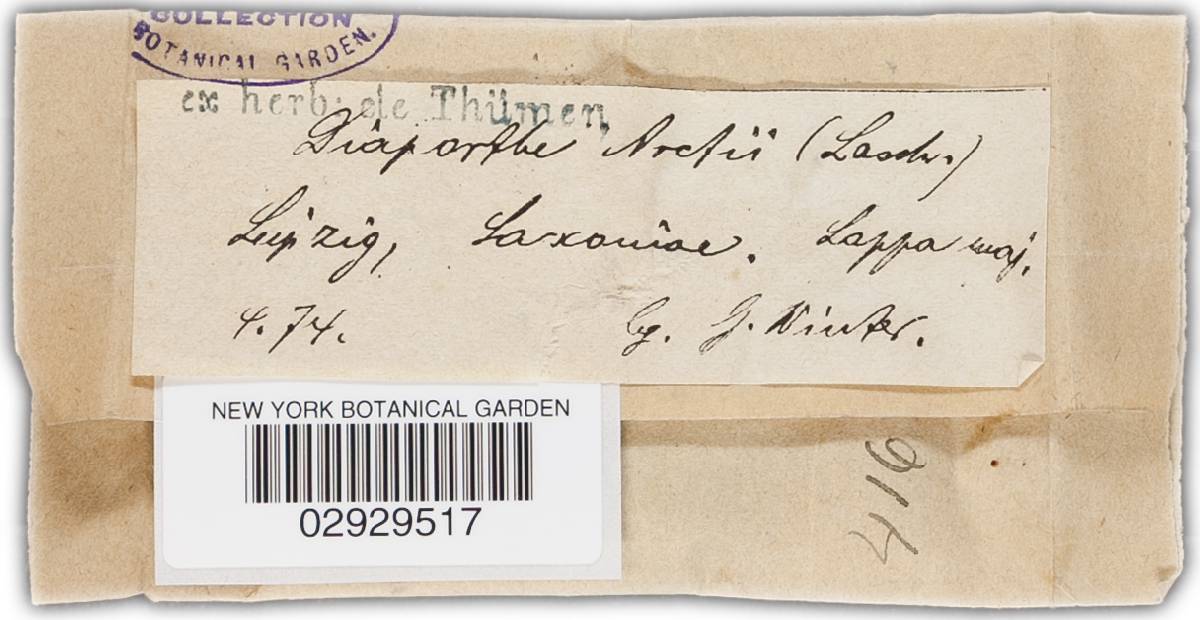 COLLECTION
BOTANICAL GARDEN.
ex herb. de Thümen,
Diaporthe Arctii (Lasch.)
Leipzig, Saxoniae. Lappa maj.
4.74. lg. G. Winter.
NEW YORK BOTANICAL GARDEN
02929517
416